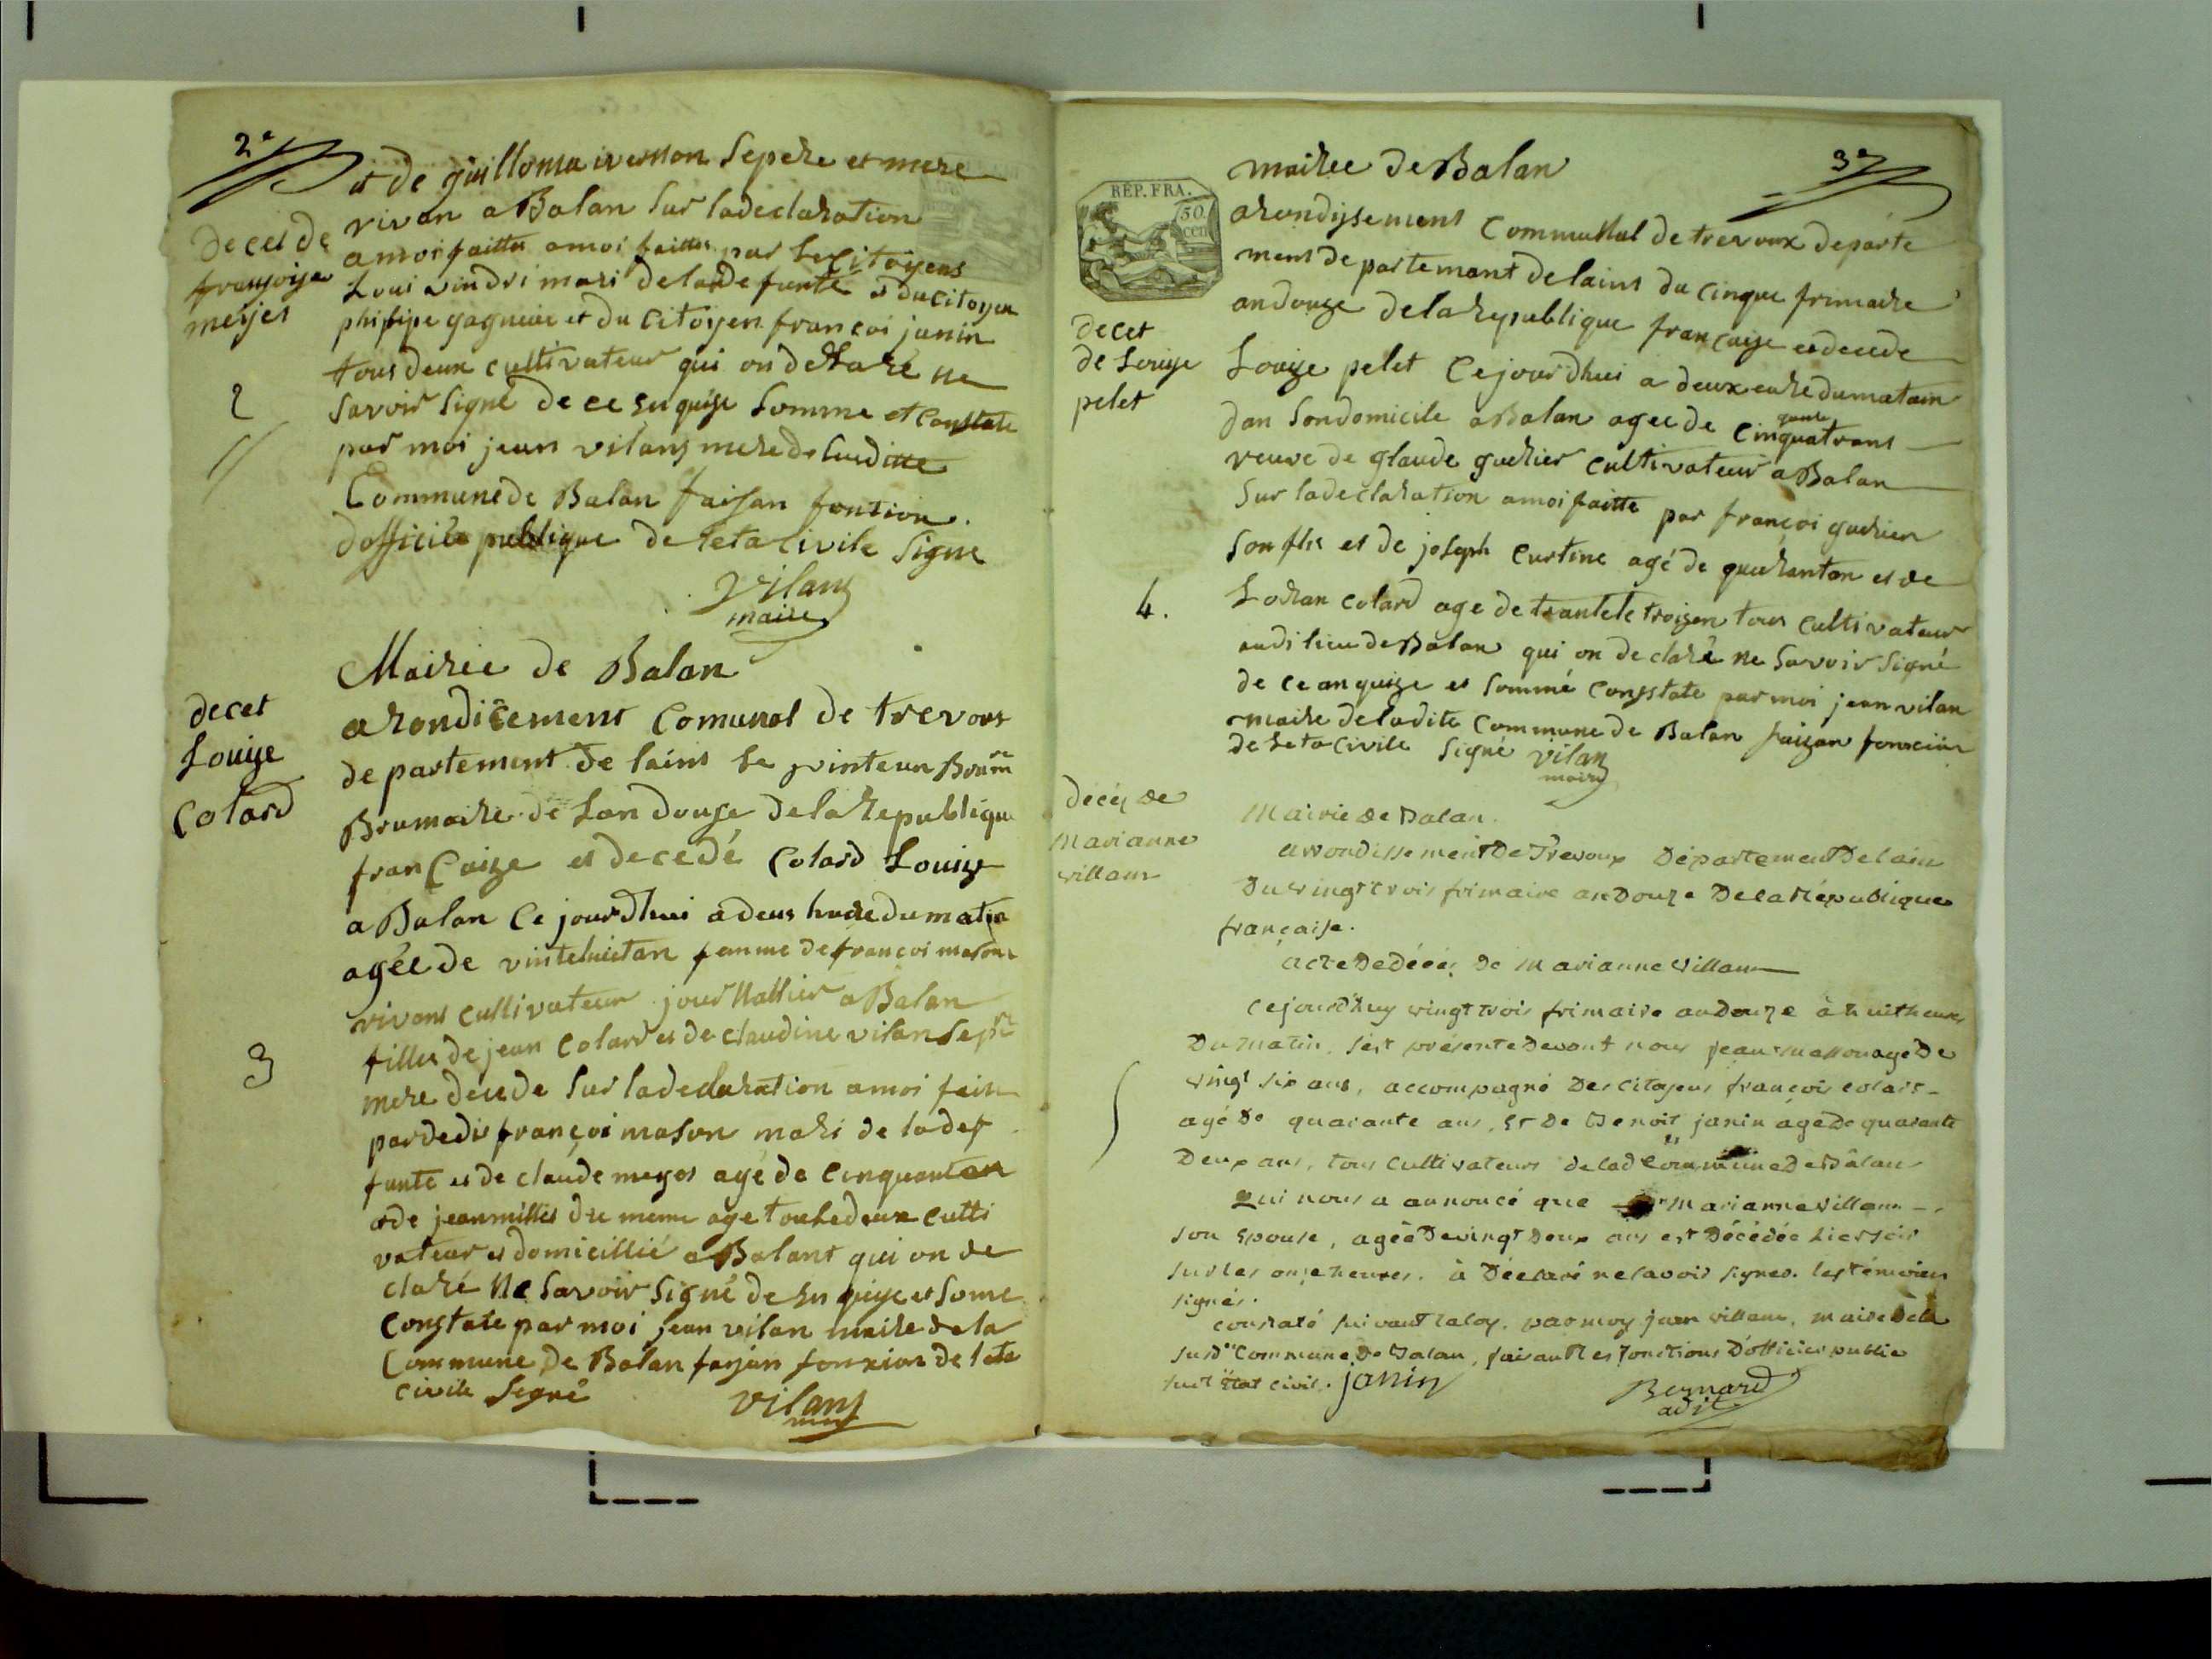 2e
et de guilloma iverson Sepere et mere
decet de
françoise
meyjet
2
vivan a Balan Sur ladeclaration
amoi faittes amoi faittes par le Citoyens
Loui vindri mari de la defunte et du citoyen
phipipe gagneux et du Citoyen françoi janin
tous deux cultivateur qui on déclaré ne
savoir signé de ce enquise somme et Constate
par moi jean vilans mere de laditte
Commune de Balan faisan fontion
dofficile publique de leta civile Signe
vilans
maire
decet
Louise
Colard
3
Mairie de Balan
arondicement Comunal de trevous
departement de lains le vinteun Brum
Brumaire de Lan douse de la republique
franCaise et decedé Colard Louise
a Balan Ce jourdhui a deus heure du matin
agée de vintehuictan famme de françoi mason
vivant cultivateur journallier a Balan
fille de jean Colard et de Claudine vilan Sepe
mere decede Sur ladeclaration amoi fait
par dedi françoi mason mari de ladef
funte et de claude meyes age de Cinquantan
et de jean millies du meme age toutedeux culti
vateur et domicillié a Balant qui on de
claré Ne Savoir Signé de enquise et Some
Constate par moi jean vilan maire de la
Commune de Balan faisan fonxion de leta
civile Segné
vilans
3e
REP. FRA.
50
cen
mairee de Balan
arondissement Communal de trevoux departe
ment departemant delains du Cinque frimaire
andouze de la Republique françaije et decede
decet
de Louije
pelet
4.
Louije pelet Cejourdhui a deux eure du matain
dan Sondomicile a Balan agee de Cinquatrans
quante
veuve de glaude guerier cultivateur a Balan
Sur ladeclaration amoi faitte par françoi guerier
son fils et de joseph Curtine agé de quarantan et de
Loran Colard age de trantete troisan tous cultivateur
audi lieu de Balan qui on declaré ne Savoir Signé
de ce anquise et Sommé Constate par moi jean vilan
maire de ladite Commune de Balan faizan fonxion
de Leta Civile Signé vilan
maire
Décès de
Marianne
villam
Mairie de Balan.
arrondissement De Trevoux Département De l'ain
Du vingt trois frimaire an Douze De la République
française.
acte De décès De Marianne Villam
cejourd'huy vingt trois frimaire an Douze à huit heures
Du matin, s'est présenté Devant nous jean masson agé De
vingt six ans, accompagné Des citoyens françois colard
agé De quarante ans, et De Benoit janin agé De quarante
Deux ans, tous Cultivateurs De lad. Commune De Balan
Qui nous a annoncé que Marianne Villam
son Epouse, agée De vingt Deux ans est Décédée hier soir
sur les onze heures. à Déclaré ne savoir signer. les témoins
signés.
constaté suivant la loy, par moy jean villam, maire De la
susd. Commune De Balan, faisant les fonctions D'officier public
sur l'Etat civil. janin
Bernard
adjt